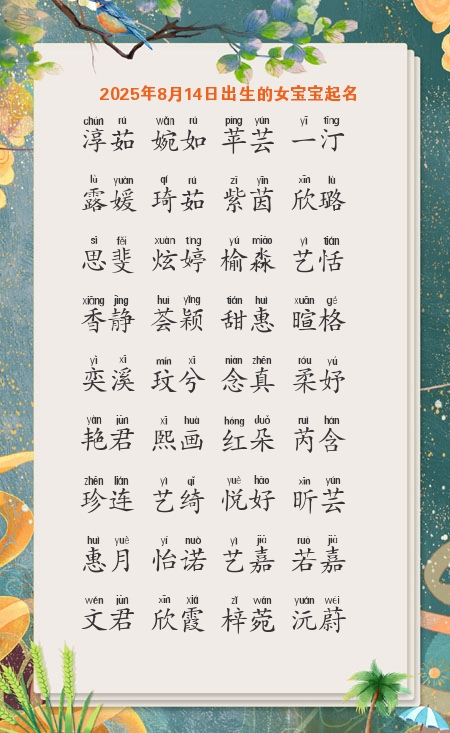 2025年8月14日出生的女宝宝起名
chún rú wǎn rú píng yún yī tīng
淳茹 婉如 苹芸 一汀
lù yuàn qí rú zǐ yīn xīn lù
露媛 琦茹 紫茵 欣璐
sī fěi xuàn tíng yú miǎo yì tián
思斐 炫婷 榆淼 艺恬
xiāng jìng huì yǐng tián huì xuān gé
香静 荟颖 甜惠 暄格
yì xī mín xī niàn zhēn róu yú
奕溪 玟兮 念真 柔妤
yàn jūn xī huà hóng duǒ ruì hán
艳君 熙画 红朵 芮含
zhēn lián yì qǐ yuè hǎo xīn yún
珍连 艺绮 悦好 昕芸
huì yuè yí nuò yì jiā ruò jiā
惠月 怡诺 艺嘉 若嘉
wén jūn xīn xiá zǐ wǎn yuán wèi
文君 欣霞 梓菀 沅蔚